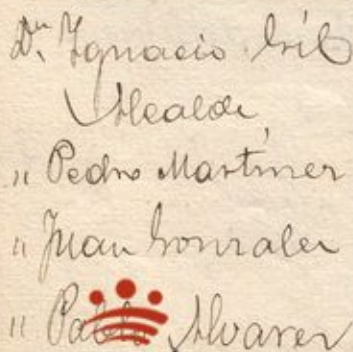 Dn. Ignacio Gil
Alcalde,
" Pedro Martinez
" Juan Gonzalez
" Pablo Alvarez